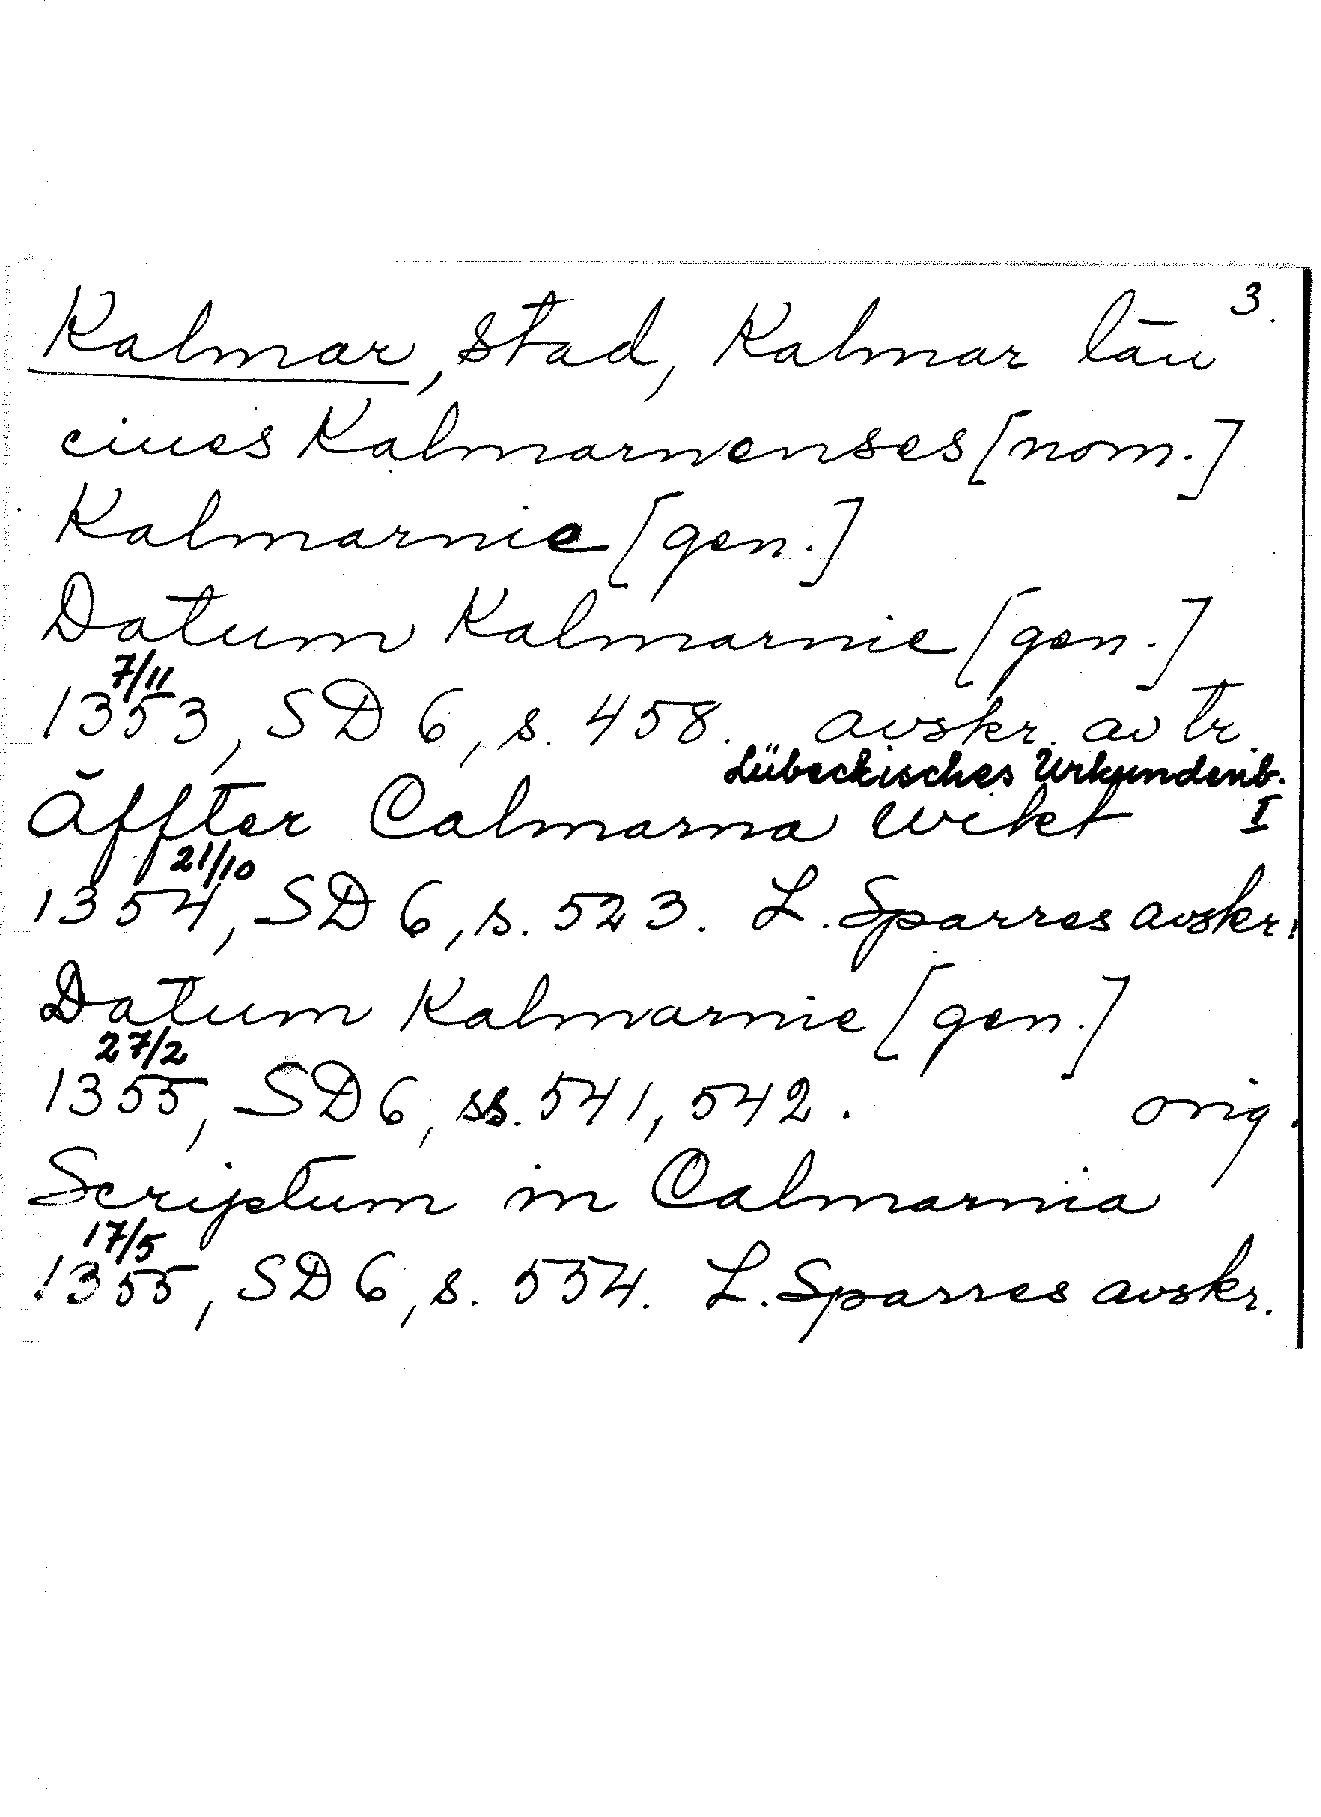 3.
Kalmar, stad, Kalmar län
ciues Kalmarnenses [nom.]
Kalmarnie [gen.]
Datum Kalmarnie [gen.]
7/11
1353, SD 6, s. 458. avskr. av tr.
Lübeckisches Urkundenb.
Äffter Calmarna wikt I
21/10
1354, SD 6, s. 523. L. Sparres avskr.
Datum Kalmarnie [gen.]
27/2
1355, SD 6, ss. 541, 542. orig.
Scriptum in Calmarnia
17/5
1355, SD 6, s. 554. L. Sparres avskr.